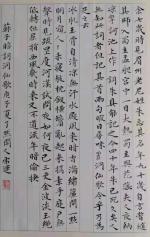 余七歲時見眉州老尼姓朱忘其名年九十歲自言嘗隨
其師入蜀主孟昶宮中一日大熱蜀主與花蕊夫人夜納
涼摩訶池上作一詞朱具能記之今四十年朱已死久矣人
無知此詞者但記其首兩句暇日尋味豈洞仙歌令乎乃為
足之云
冰肌玉骨自清涼無汗水殿風來暗香滿繡簾開一點
明月窺人人未寢欹枕釵橫鬢亂起來攜素手庭戶無
聲時見疏星渡河漢試問夜如何夜已三更金波淡玉繩
低轉但屈指西風幾時來又不道流年暗偷換
蘇軾詞洞仙歌